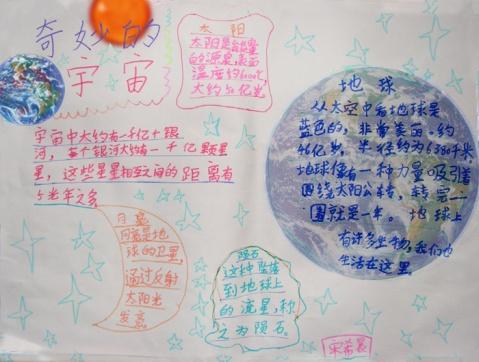 奇妙的
宇宙
太阳
太阳是能量
的源泉,表面
温度约6000℃,
大约50亿岁
宇宙中大约有一千亿个银
河,每个银河大约有一千亿颗星
星,这些星星相互之间的距离有
5光年之多
月亮
月亮是地
球的卫星,
通过反射
太阳光
发亮
陨石
这种坠落
到地球上
的流星,称
之为陨石
地球
从太空中看地球是
蓝色的,非常美丽.约
46亿岁,半径约为6380千米
地球像有一种力量吸引着
围绕太阳公转,转完一
圈就是一年。地球上
有许多生物,我们也
生活在这里